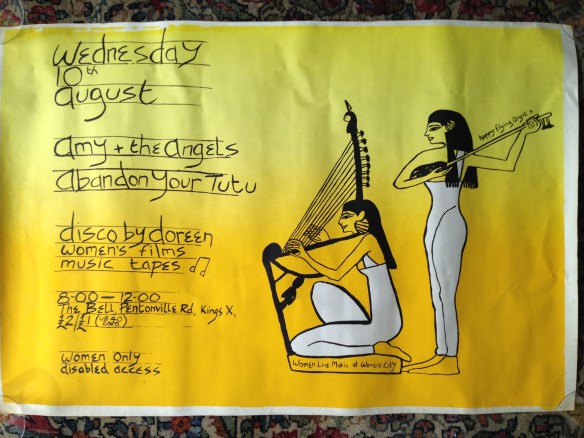 Wednesday
10th
august
amy + the angels
abandon Your Tutu
disco by doreen
women's films
music tapes
8·00 — 12·00
The BELL, Pentonville Rd, Kings X,
£2/£1
Women Only
disabled access
happy flying Angie
Women Live Music at Womens City